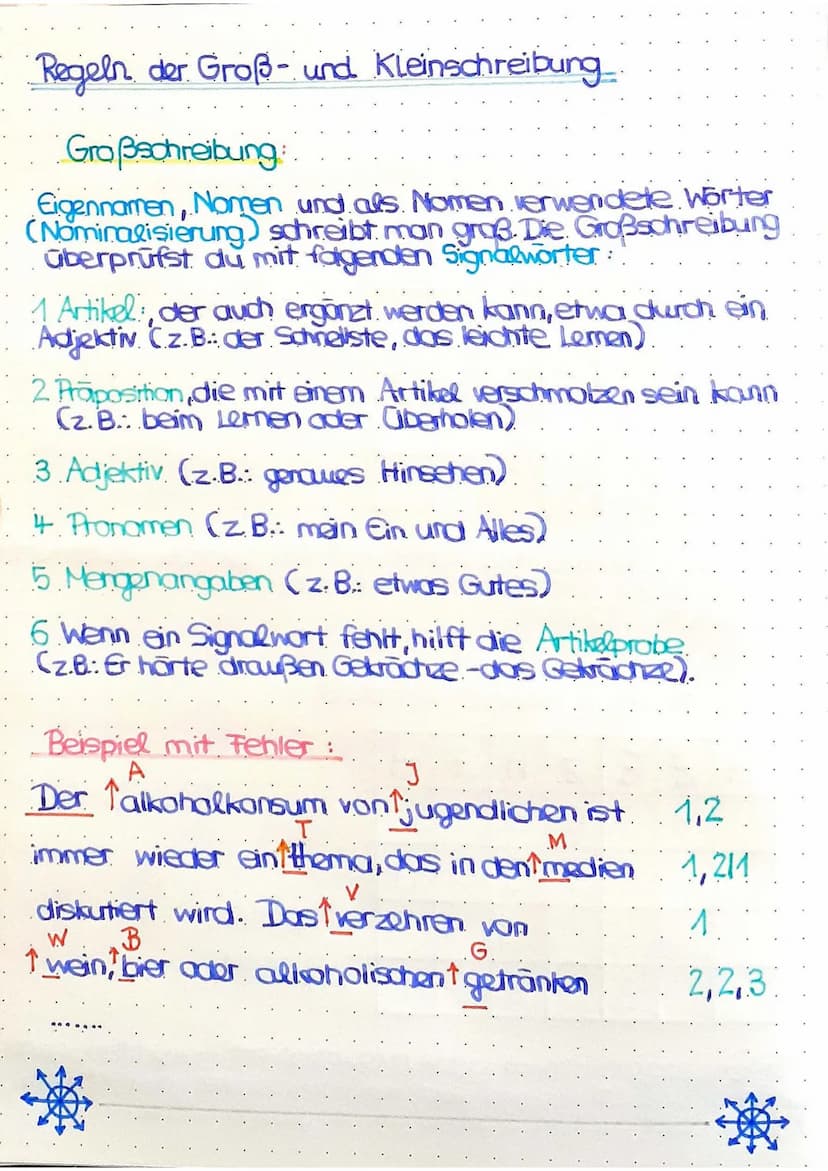 Regeln der Groß- und Kleinschreibung
Großschreibung:
Eigennamen, Nomen und als Nomen verwendete Wörter
(Nominalisierung) schreibt man groß. Die Großschreibung
überprüfst du mit folgenden Signalwörter:
1 Artikel:, der auch ergänzt werden kann, etwa durch ein
Adjektiv (z.B.: der Schnellste, das leichte Lernen)
2 Präposition, die mit einem Artikel verschmolzen sein kann
(z.B.: beim Lernen oder Überholen)
3 Adjektiv (z.B.: genaues Hinsehen)
4 Pronomen (z.B.: mein Ein und Alles)
5 Mengenangaben (z.B.: etwas Gutes)
6 Wenn ein Signalwort fehlt, hilft die Artikelprobe
(z.B: Er hörte draußen Gekrächze - das Gekrächze).
Beispiel mit Fehler:
A J
Der ↑alkoholkonsum von ↑jugendlichen ist 1,2
T M
immer wieder ein ↑thema, das in den ↑medien 1,2/1
V
diskutiert wird. Das ↑verzehren von 1
W B G
↑wein, ↑bier oder alkoholischen ↑getränken 2,2,3
.......